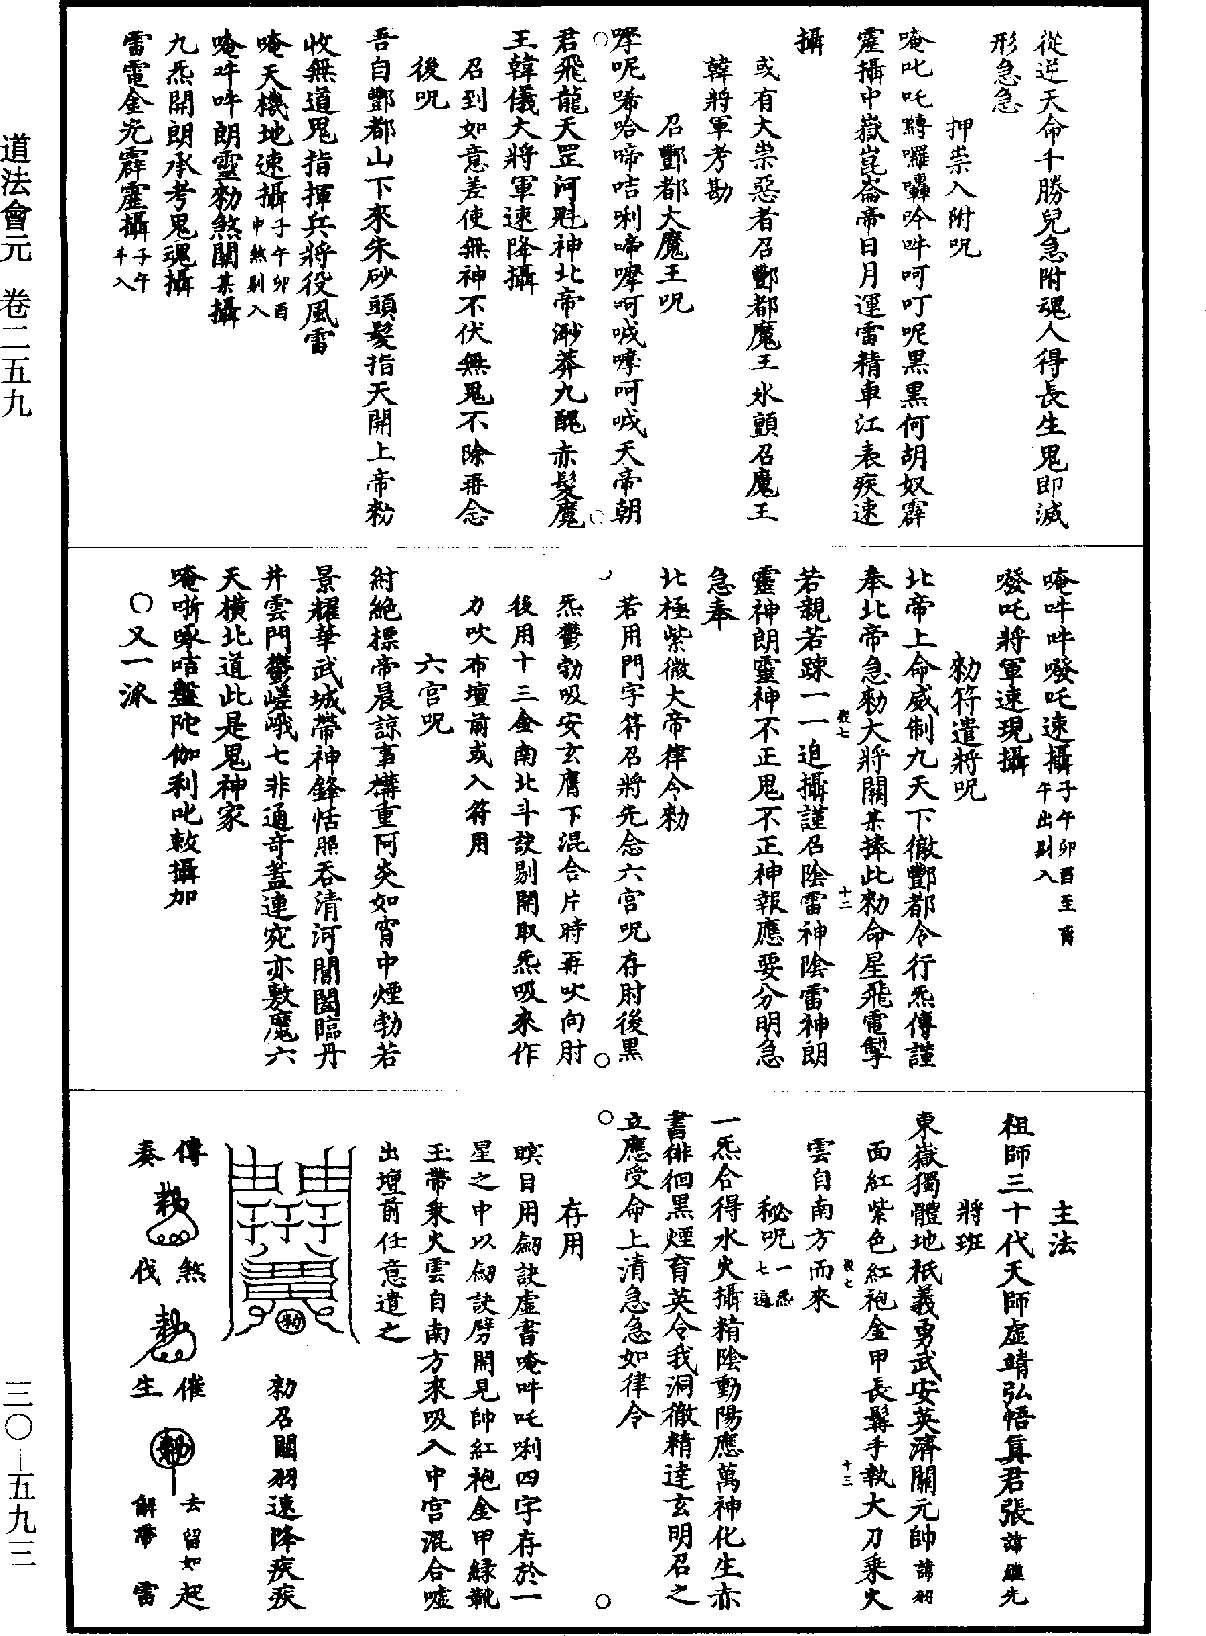 道法會元　卷二五九
三〇—五九三
從逆天命千勝兒急附魂人得長生鬼即滅
形急急
押祟入附呪
唵叱吒囀囉轟吟吽呵叮呢黑黑何胡奴霹
靂攝中嶽崑崙帝日月運雷精車江表疾速
攝
或有大祟惡者召酆都魔王水顫召魔王
韓將軍考勘
召酆都大魔王呪
㗶呢唏哈啼咭唎啼㗶呵喊㗶呵喊天帝朝
君飛龍天罡河魁神北帝渺莽九醜赤髮魔
王韓儀大將軍速降攝
召到如意差使無神不伏無鬼不除再念
後呪
吾自酆都山下來朱砂頭髮指天開上帝勑
收無道鬼指揮兵將役風雷
唵天機地速攝子午卯酉中煞剔入
唵吽吽朗靈勑煞關某攝
九炁開朗承考鬼魂攝
雷電金光霹靂攝子午斗入
唵吽吽㗶吒速攝子午卯酉至
㗶吒將軍速現攝午出剔入
勑符遣將呪
北帝上命威制九天下徹酆都令行炁傳謹
奉北帝急勑大將關某捧此勑命星飛電掣
若親若踈一一追攝謹召陰雷神陰雷神朗
靈神朗靈神不正鬼不正神報應要分明急
急奉
北極紫微大帝律令勑
若用門字符召將先念六宮呪存肘後黑
炁鬱勃吸安玄膺下混合片時再吹向肘
後用十三金南北斗訣剔開取炁吸來作
力吹布壇前或入符用
六宮呪
紂絶摽帝晨諒事構重阿炎如霄中煙勃若
景耀華武城帶神鋒恬照吞清河閶闔臨丹
井雲門鬱嵯峨七非通奇蓋連宛亦敷魔六
天橫北道此是鬼神家
唵哳咯咭盤陀伽利叱敕攝加
〇又一派
主法
祖師三十代天師虛靖弘悟真君張諱繼先
將班
東嶽獨體地祇義勇武安英濟關元帥諱羽
面紅紫色紅袍金甲長鬚手執大刀乘火
雲自南方而來
秘呪一炁七遍
一炁合得水火攝精陰動陽應萬神化生赤
書徘徊黑煙育英令我洞徹精達玄明召之
立應受命上清急急如律令
存用
瞑目用劒訣虛書唵吽吒唎四字存於一
星之中以劒訣劈開見帥紅袍金甲緑靴
玉帶乘火雲自南方來吸入中宮混合噓
出壇前任意遣之
勑召關羽速降疾疾
傳　煞　催　去留如起
奏　伐　生　解滯　雷